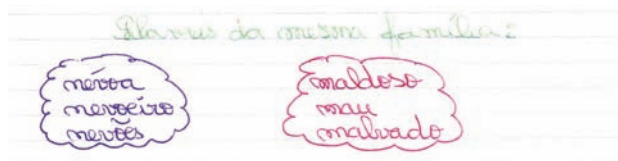 Plavras da mesma família:
névoa
nevoeiro
nevões
maldoso
mau
malvado